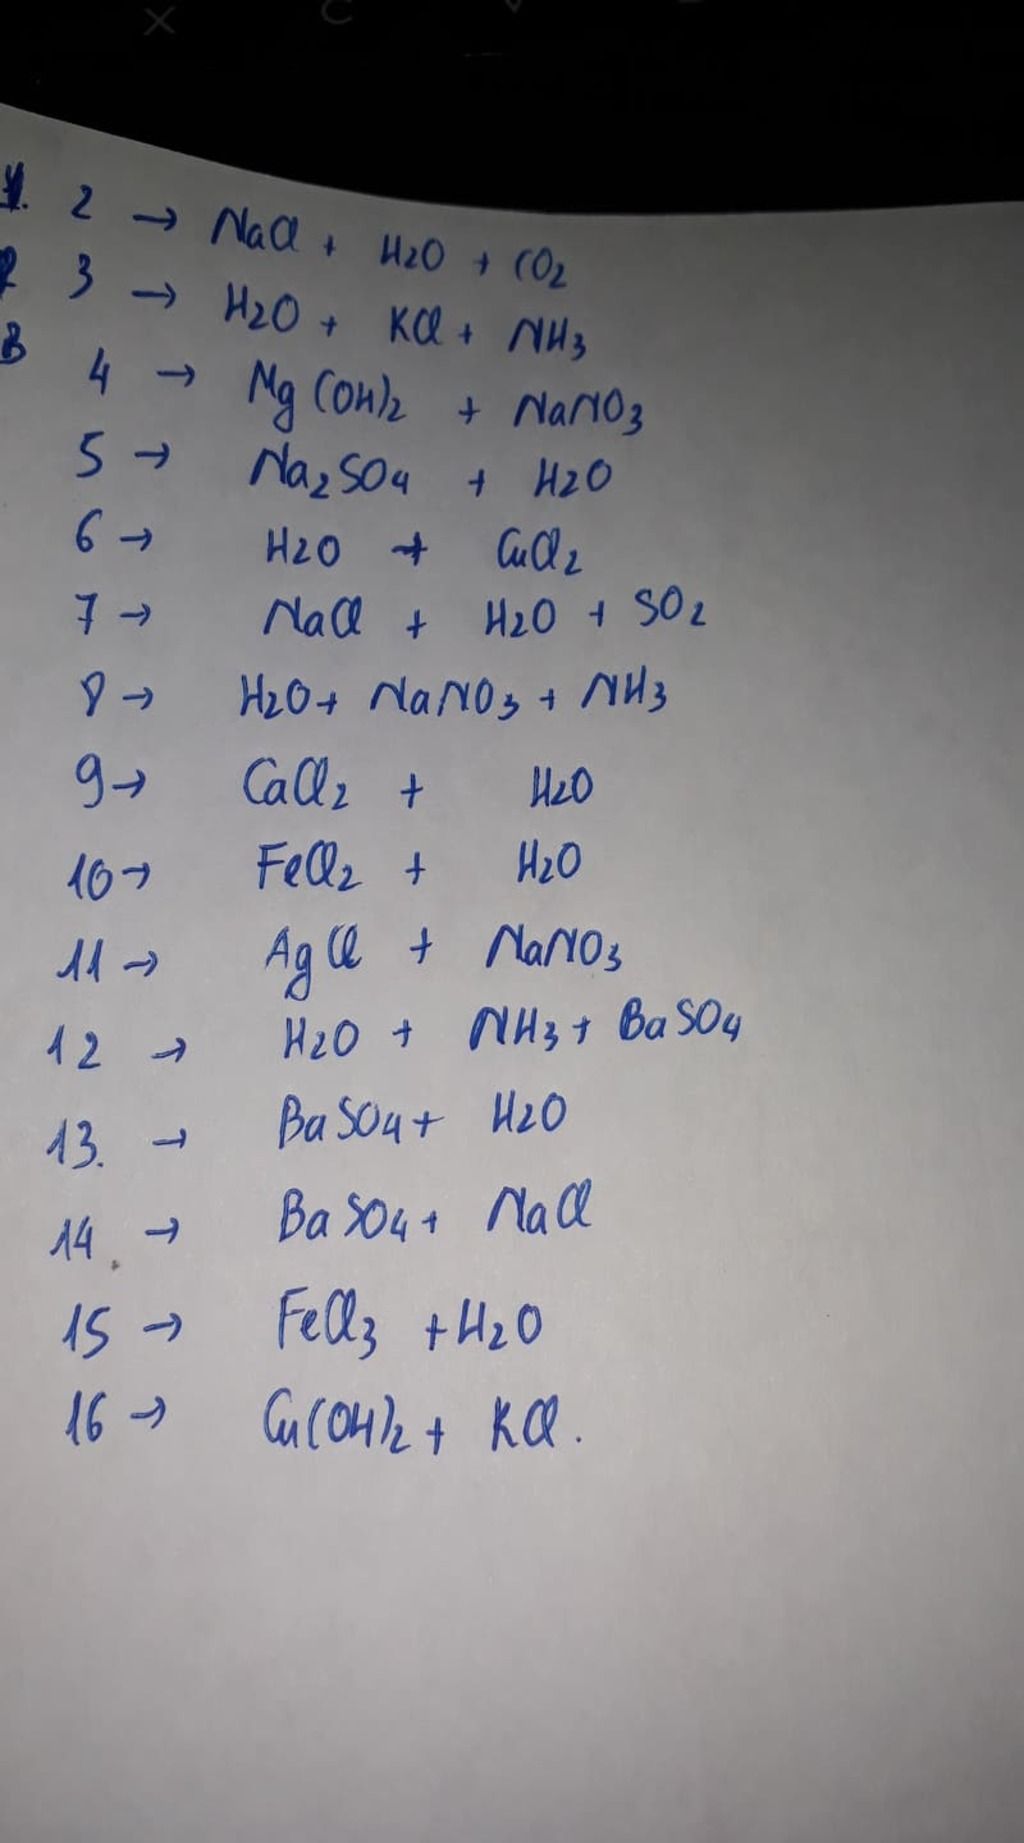 2 → NaCl + H2O + CO2
3 → H2O + KCl + NH3
4 → Mg(OH)2 + NaNO3
5 → Na2SO4 + H2O
6 → H2O + CuCl2
7 → NaCl + H2O + SO2
8 → H2O + NaNO3 + NH3
9 → CaCl2 + H2O
10 → FeCl2 + H2O
11 → AgCl + NaNO3
12 → H2O + NH3 + BaSO4
13. → BaSO4 + H2O
14. → BaSO4 + NaCl
15 → FeCl3 + H2O
16 → Cu(OH)2 + KCl.